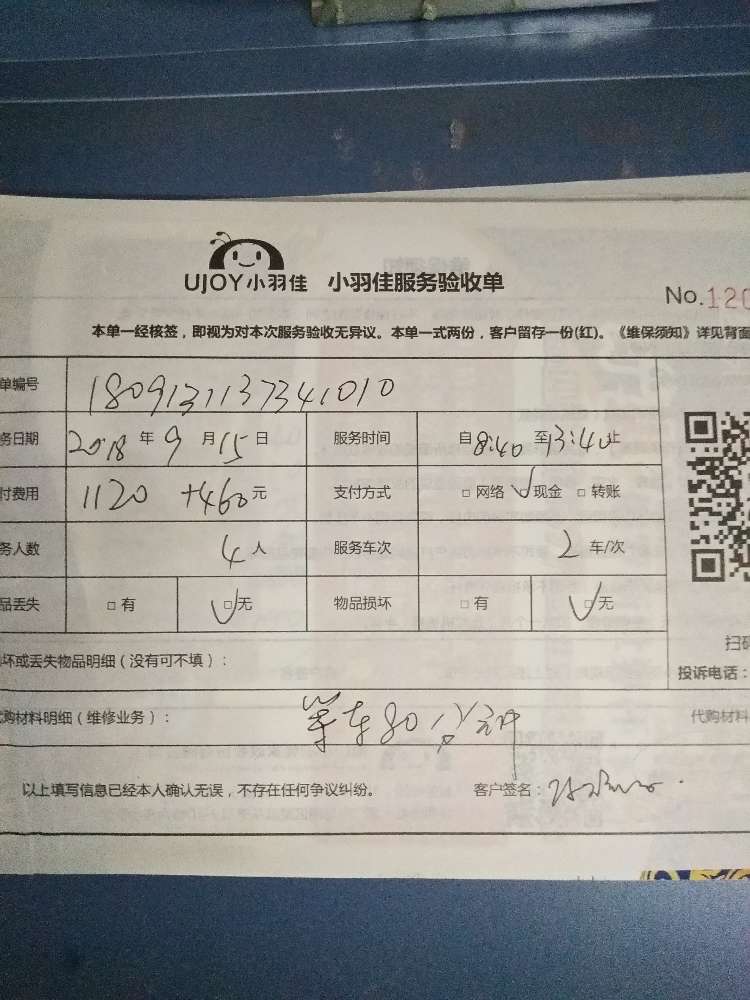 UJOY小羽佳 小羽佳服务验收单
No.120
本单一经核签，即视为对本次服务验收无异议。本单一式两份，客户留存一份(红)。《维保须知》详见背面
单编号 1809131137341010
务日期 2018 年 9 月 15 日 服务时间 自 8:40 至 13:40 止
付费用 1120 +460 元 支付方式 □ 网络 □ 现金 □ 转账
务人数 4 人 服务车次 2 车/次
品丢失 □ 有 □ 无 物品损坏 □ 有 □ 无
扫码
坏或丢失物品明细（没有可不填）：
投诉电话：
代购材料明细（维修业务）： 等车80分钟
代购材料
以上填写信息已经本人确认无误，不存在任何争议纠纷。 客户签名：